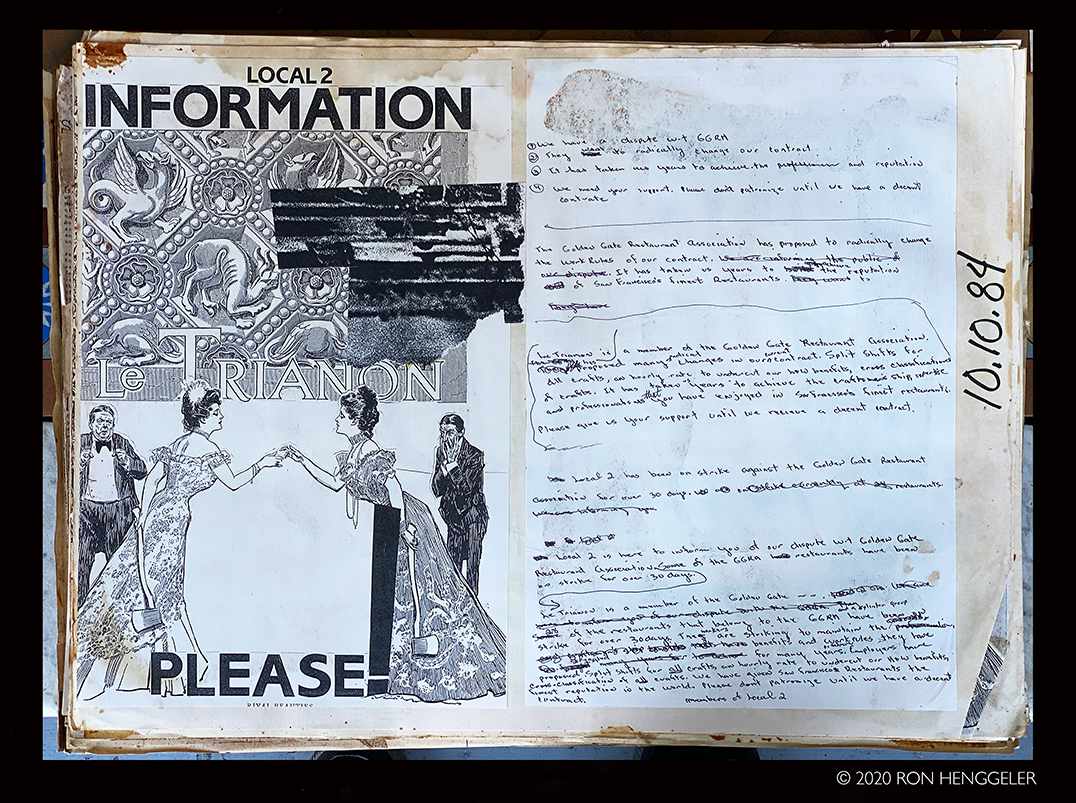 LOCAL 2
INFORMATION
Le TRIANON
PLEASE!
RIVAL BEAUTIES
① We have a dispute wit GGRA
② They want to radically change our contract
③ It has taken us years to achieve the and reputation
④ We need your support. Please don't patronize until we have a decent
contrate.
The Golden Gate Restaurant Association has proposed to radically change
the Work Rules of our contract. We are informing the public of
It has taken us years to the reputation
of San Francisco's finest Restaurants. to
Le Trianon is a member of the Golden Gate Restaurant Association.
proposed radical changes in our current contract. Split Shifts for
All crafts, an hourly rate to undercut our How benefits, cross classifications
of crafts. It has taken years to achieve the craftsmanship, expertise
and professionalism you have enjoyed in San Francisco finest restaurants.
Please give us your support until we recieve a decent contract.
Local 2 has been on strike against the Golden Gate Restaurant
association for over 30 days. on restaurants
Local 2 is here to inform you of our dispute wit Golden Gate
Restaurant Association. Some of the GGRA restaurants have been
on strike for over 30 days.
Le Trianon is a member of the Golden Gate
of the restaurants that belong to the GGRA have been
strike for over 30 days. They are striking to maintain the
for many years. Employers have
proposed split shifts for all crafts an hourly rate to undercut our How benefits,
cross-classification of all crafts. We have given San Francisco Restaurants the
finest reputation in the world. Please don't patronage until we have a decent
contract.
members of local 2
10.10.84
© 2020 RON HENGGELER